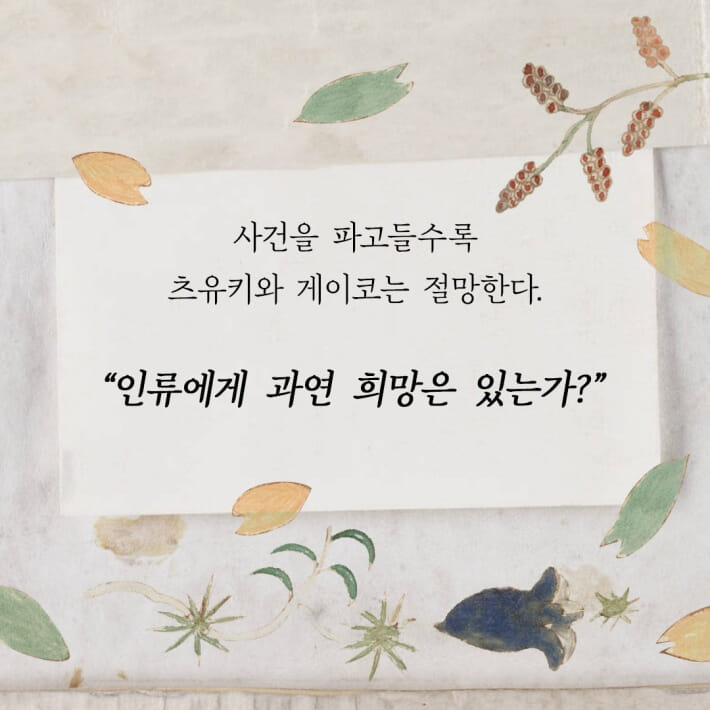 사건을 파고들수록
츠유키와 게이코는 절망한다.
“인류에게 과연 희망은 있는가?”